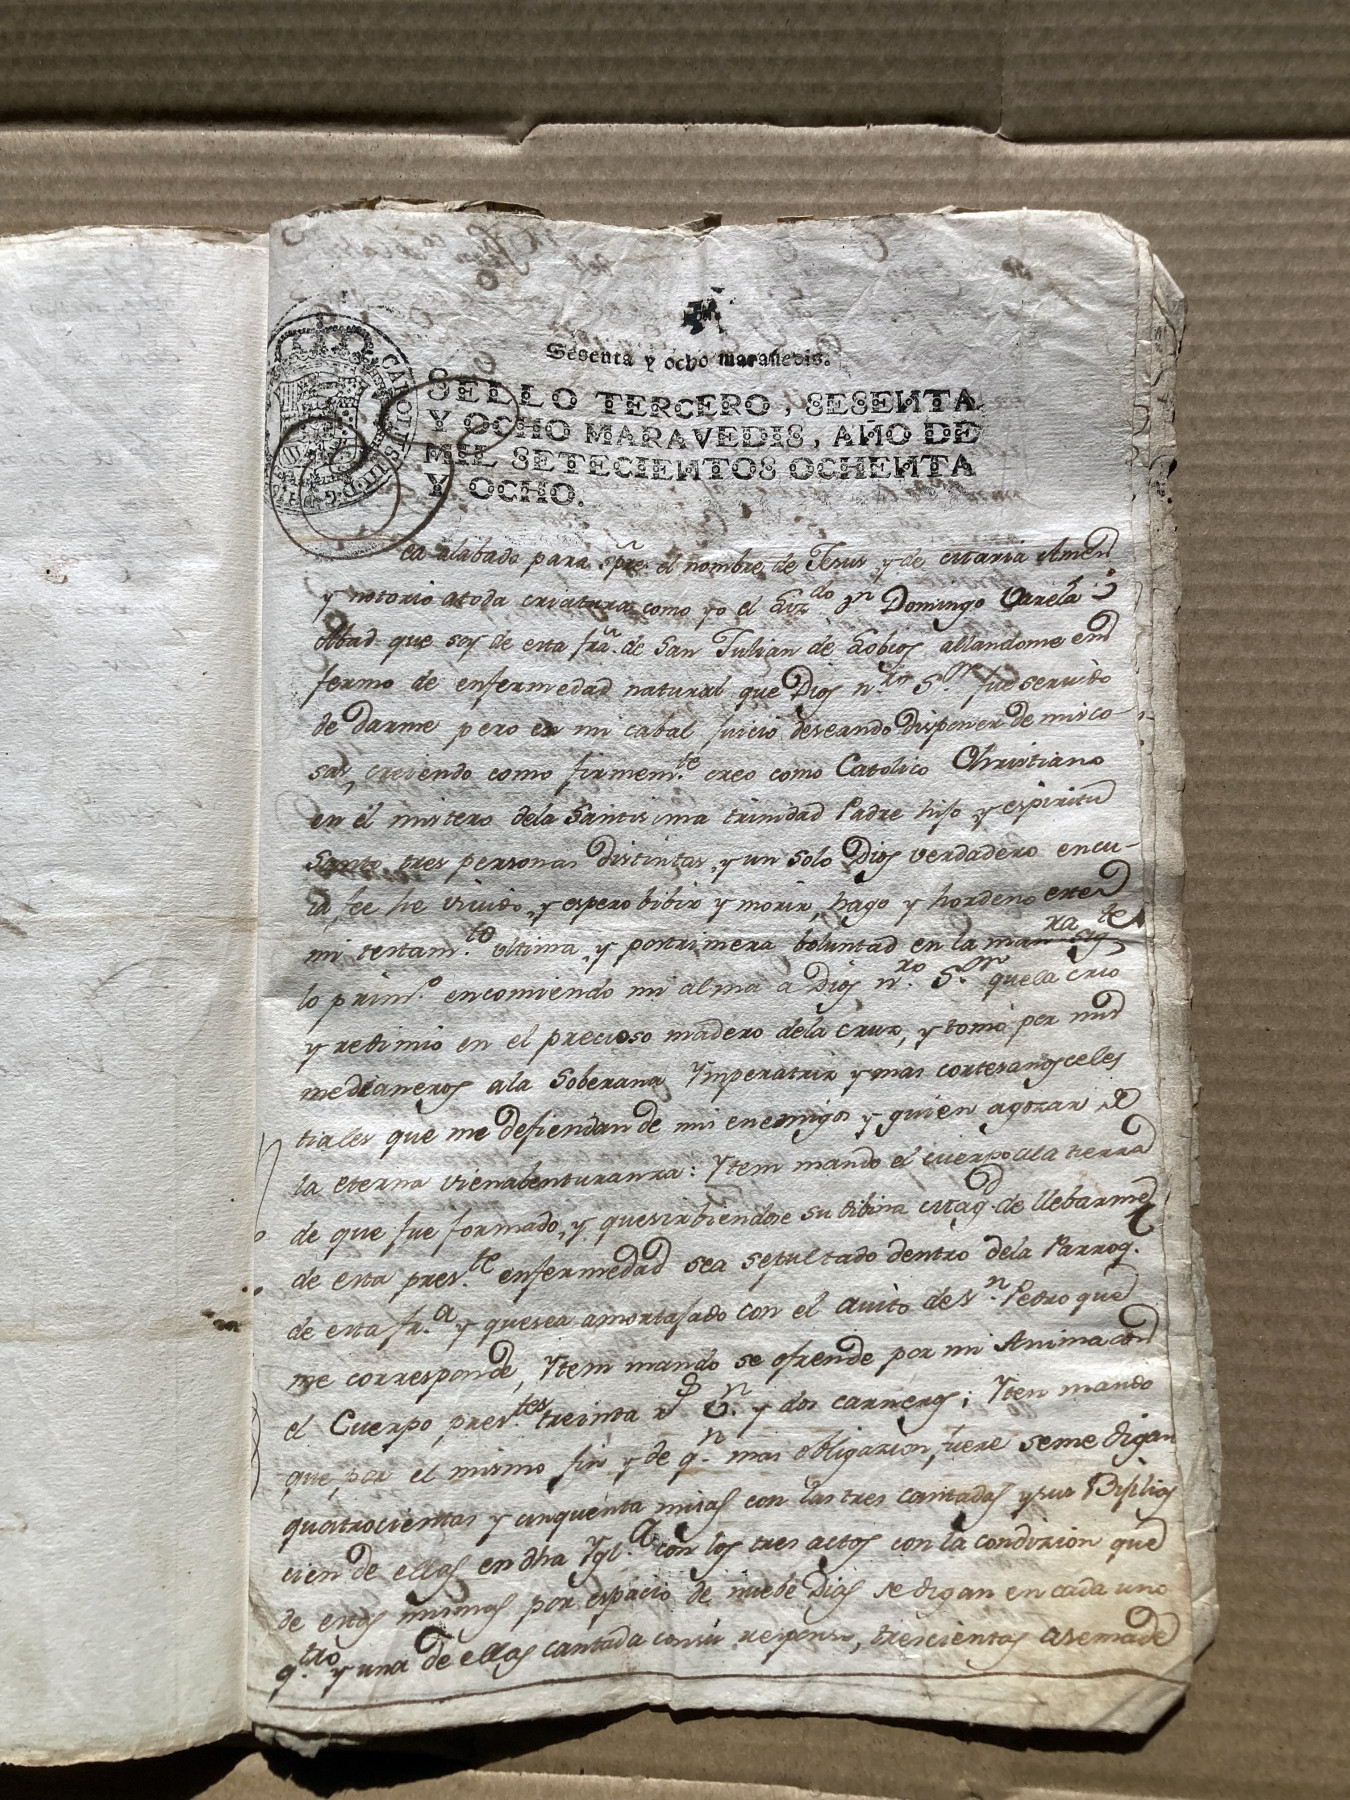 Sesenta y ocho marauedis.
SELLO TERCERO, SESENTA
Y OCHO MARAVEDIS, AÑO DE
MIL SETECIENTOS OCHENTA
Y OCHO.
CAROLUS III D G
Sea alabado para spre el nombre de Jesus y de Maria Amen
y notorio atoda criatura como yo el Lizdo Dn Domingo Varela
Abad que soy de esta fra de San Julian de Lobios allandome en
fermo de enfermedad natural que Dios nro Sr fue servido
de darme pero en mi cabal juicio deseando disponer de mis co
sas, creiendo como firmemte creo como Catolico Christiano
en él mistero dela Santisima trinidad Padre hijo y espiritu
Santo tres personas distintas, y un solo Dios verdadero en cu-
ia fee he vivido, y espero bibir y morir, hago y hordeno este
mi testamto ultima, y postrimera boluntad en la manra sigte
lo primo encomiendo mi alma a Dios nro Sr quela crio
y redimio en el precioso madero dela cruz, y tomo por mis
medianeros ala Soberana Ymperatriz y mas cortesanos celes
tiales que me defiendan de mi enemigo y guien agozar de
la eterna vienabenturanza: Ytem mando el cuerpo ala tierra
de que fue formado, y quesirbiendose su dibina Magd de llebarme
de esta preste enfermedad sea sepultado dentro dela Parroq.
de esta fra y quesea amortajado con el avito de Sn Pedro que
me corresponde, Ytem mando se ofrende por mi Anima con
el Cuerpo prestes treinta rs vn y dos carneros; Yten mando
que, por el mismo fin y de qn mas obligazion, fuere seme digan
quatrocientas y cinquenta misas con las tres cantadas y sus Bijilias
cien de ellas en dha Ygla con los tres actos con la condizion que
de estas mismas por espacio de nuebe Dias se digan en cada uno
qtro y una de ellas cantada consu responso, trescientas asemade